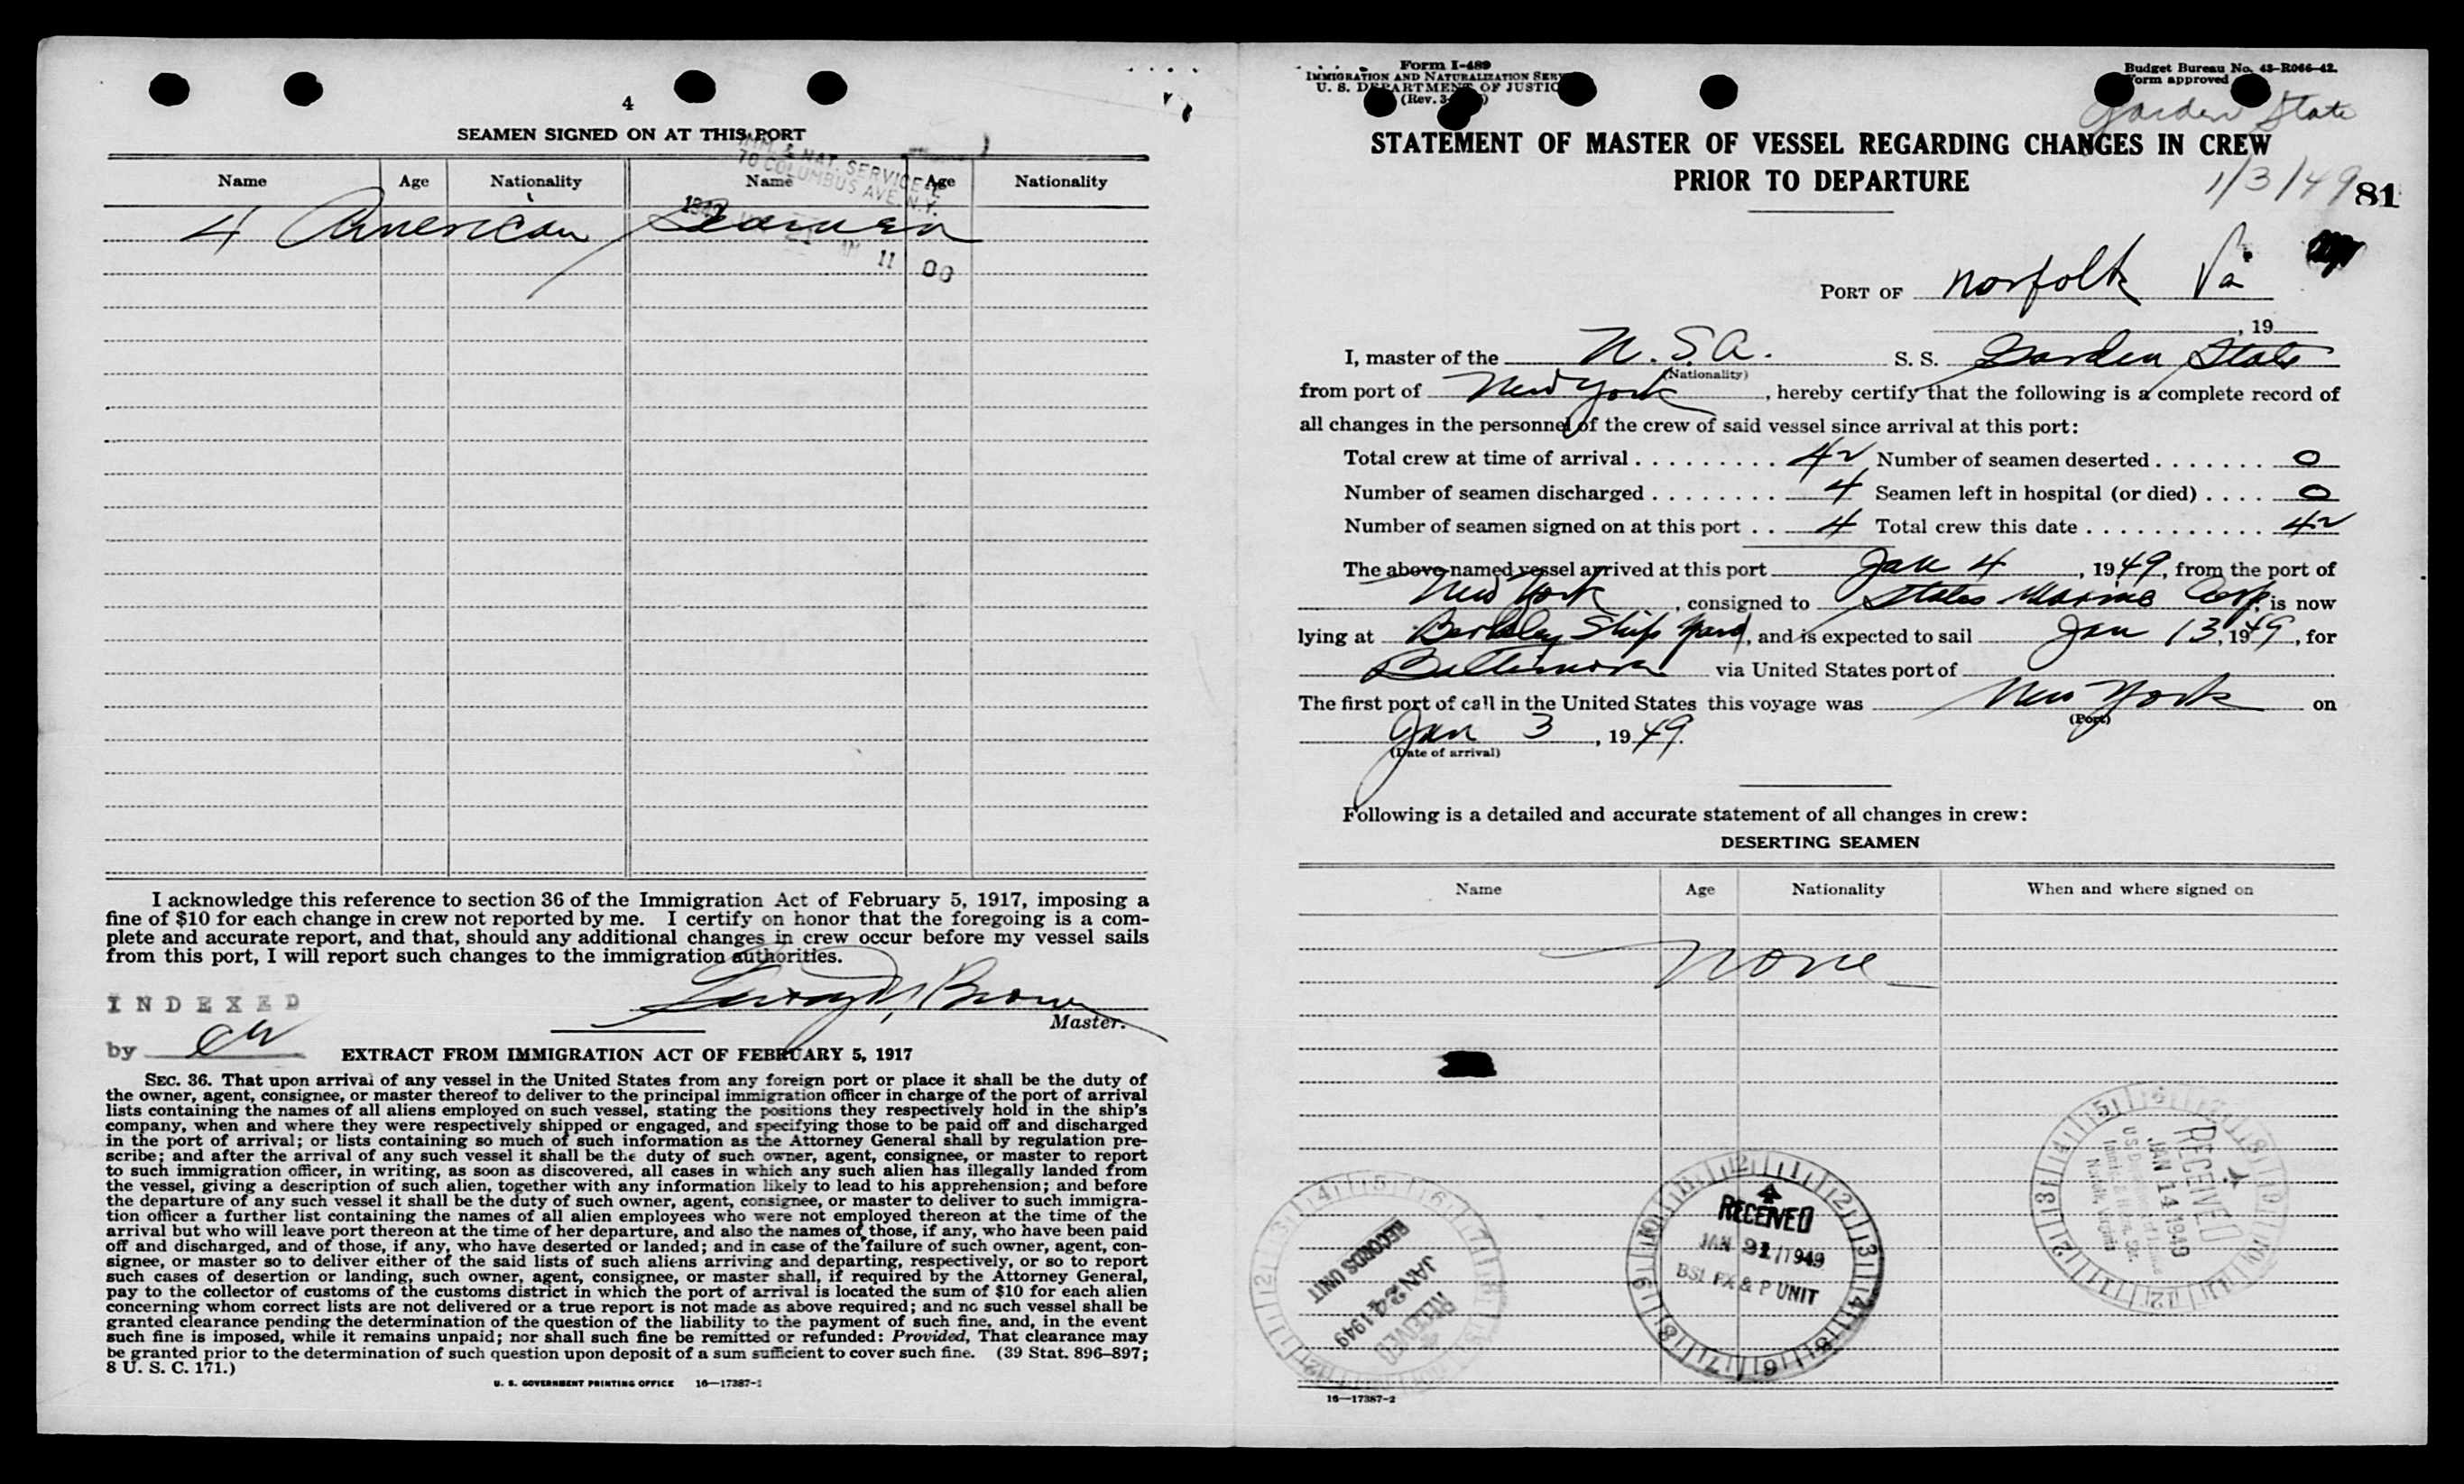 4
SEAMEN SIGNED ON AT THIS PORT
IMM. & NAT. SERVICE
70 COLUMBUS AVE. N.Y.
Name Age Nationality Name Age Nationality
4 American Seamen
11 00
I acknowledge this reference to section 36 of the Immigration Act of February 5, 1917, imposing a
fine of $10 for each change in crew not reported by me. I certify on honor that the foregoing is a com-
plete and accurate report, and that, should any additional changes in crew occur before my vessel sails
from this port, I will report such changes to the immigration authorities.
INDEXED
Brown
Master.
by
EXTRACT FROM IMMIGRATION ACT OF FEBRUARY 5, 1917
SEC. 36. That upon arrival of any vessel in the United States from any foreign port or place it shall be the duty of
the owner, agent, consignee, or master thereof to deliver to the principal immigration officer in charge of the port of arrival
lists containing the names of all aliens employed on such vessel, stating the positions they respectively hold in the ship's
company, when and where they were respectively shipped or engaged, and specifying those to be paid off and discharged
in the port of arrival; or lists containing so much of such information as the Attorney General shall by regulation pre-
scribe; and after the arrival of any such vessel it shall be the duty of such owner, agent, consignee, or master to report
to such immigration officer, in writing, as soon as discovered, all cases in which any such alien has illegally landed from
the vessel, giving a description of such alien, together with any information likely to lead to his apprehension; and before
the departure of any such vessel it shall be the duty of such owner, agent, consignee, or master to deliver to such immigra-
tion officer a further list containing the names of all alien employees who were not employed thereon at the time of the
arrival but who will leave port thereon at the time of her departure, and also the names of those, if any, who have been paid
off and discharged, and of those, if any, who have deserted or landed; and in case of the failure of such owner, agent, con-
signee, or master so to deliver either of the said lists of such aliens arriving and departing, respectively, or so to report
such cases of desertion or landing, such owner, agent, consignee, or master shall, if required by the Attorney General,
pay to the collector of customs of the customs district in which the port of arrival is located the sum of $10 for each alien
concerning whom correct lists are not delivered or a true report is not made as above required; and no such vessel shall be
granted clearance pending the determination of the question of the liability to the payment of such fine, and, in the event
such fine is imposed, while it remains unpaid; nor shall such fine be remitted or refunded: Provided, That clearance may
be granted prior to the determination of such question upon deposit of a sum sufficient to cover such fine. (39 Stat. 896-897;
8 U. S. C. 171.)
U. S. GOVERNMENT PRINTING OFFICE 16—17387-1
Form I-489
IMMIGRATION AND NATURALIZATION SERV
U. S. DEPARTMENT OF JUSTIC
(Rev. 3-
Budget Bureau No. 43-R066-42.
Form approved
Garden State
STATEMENT OF MASTER OF VESSEL REGARDING CHANGES IN CREW
PRIOR TO DEPARTURE
1/3/49 81
PORT OF Norfolk Va
, 19
I, master of the U.S.A. S. S. Garden State
(Nationality)
from port of New York, hereby certify that the following is a complete record of
all changes in the personnel of the crew of said vessel since arrival at this port:
Total crew at time of arrival . . . . . . . . . 42 Number of seamen deserted . . . . . . . 0
Number of seamen discharged . . . . . . . . 4 Seamen left in hospital (or died) . . . . 0
Number of seamen signed on at this port . . 4 Total crew this date . . . . . . . . . . . 42
The above-named vessel arrived at this port Jan 4, 1949, from the port of
New York, consigned to States Marine Corp, is now
lying at Berkley Ship Yard, and is expected to sail Jan 13, 1949, for
Baltimore via United States port of
The first port of call in the United States this voyage was New York on
(Port)
Jan 3, 1949.
(Date of arrival)
Following is a detailed and accurate statement of all changes in crew:
DESERTING SEAMEN
Name Age Nationality When and where signed on
None
RECORDS UNIT
JAN 24 1949
RECEIVED
RECEIVED
JAN 21 1949
BSI FX & P UNIT
RECEIVED
JAN 14 1949
Norfolk, Virginia
16—17387-2